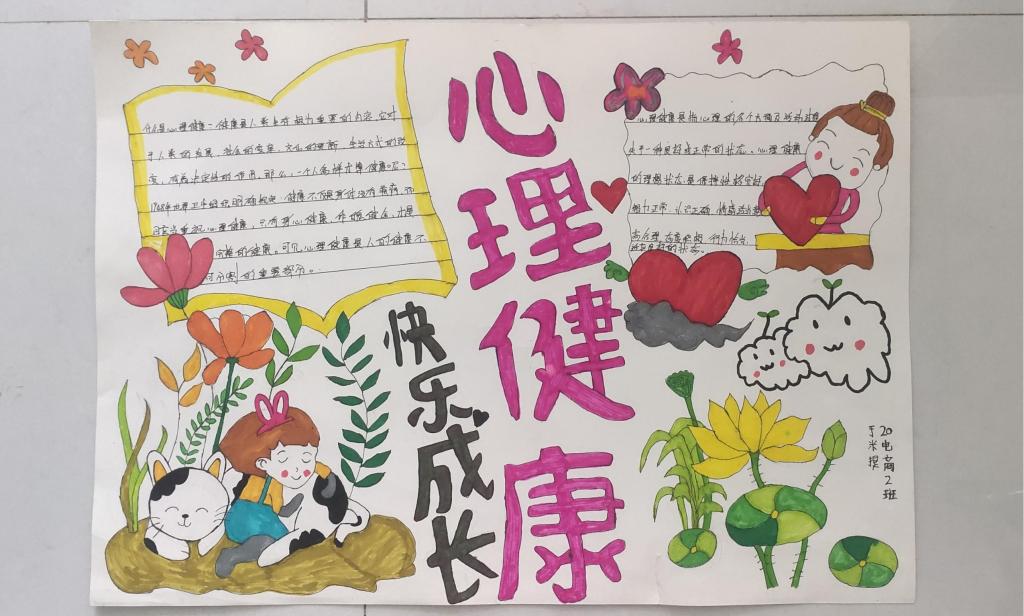 什么是心理健康－健康是人类生存极为重要的内容,它对
于人类的发展,社会的变革,文化的更新,生活方式的改
变,有着决定性的作用。那么,一个人怎样才算健康呢?
1948年世界卫生组织明确规定:健康不仅是身体没有疾病,还
应当重视心理健康,只有身心健康、体魄健全,才是
完整的健康。可见,心理健康是人的健康不
可分割的重要部分。
心理健康
快乐成长
心理健康是指心理的各个方面及活动过程
处于一种良好或正常的状态。心理健康
的理想状态是保持性格完好
智力正常、认知正确,情感适当
合理、态度积极、行为恰当
适应良好的状态。
20电商2班